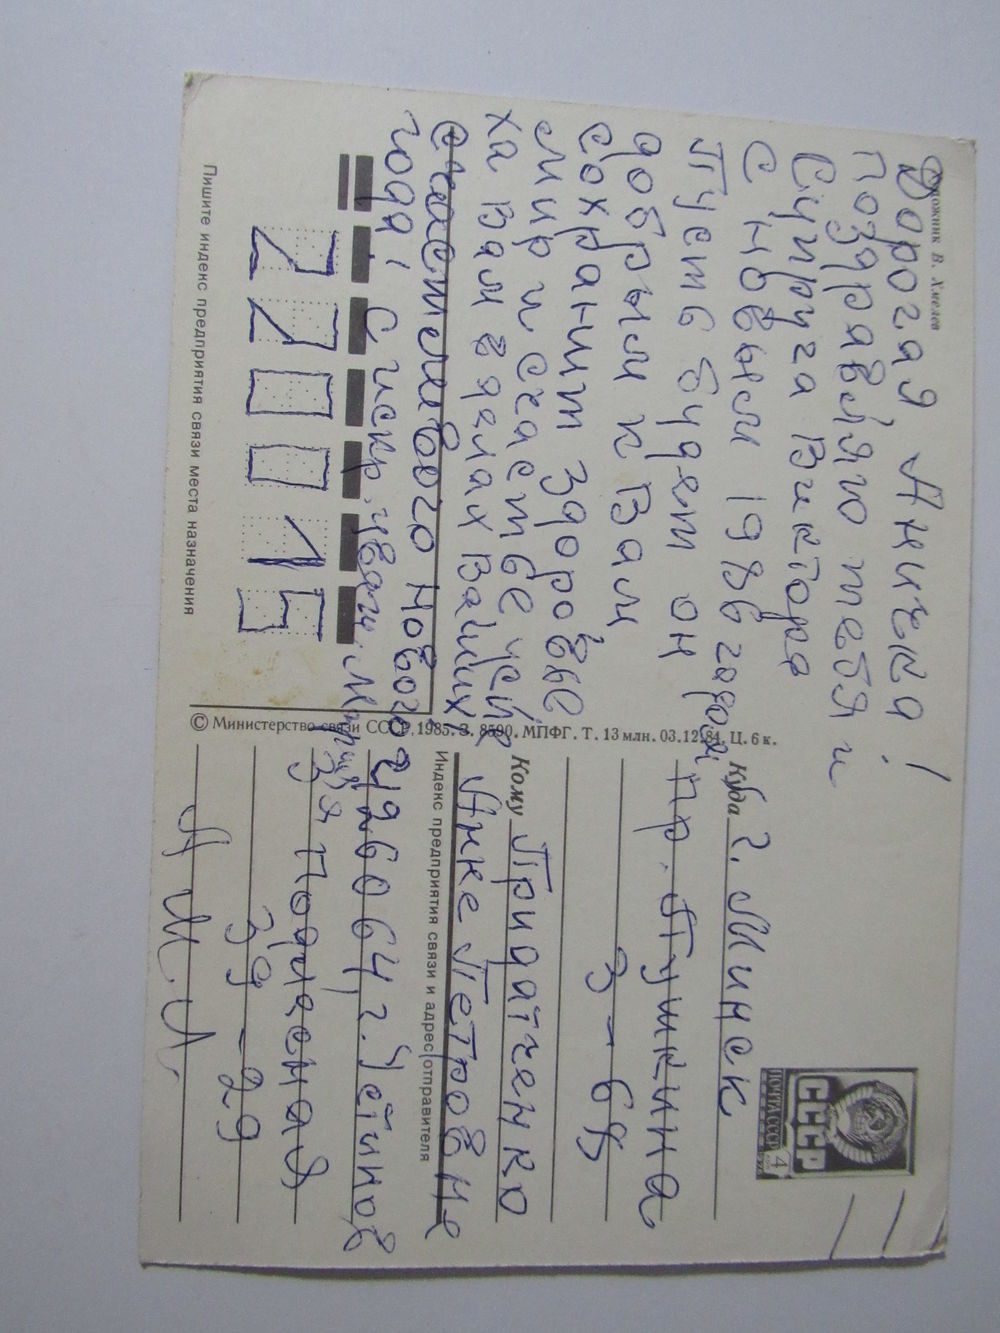 Художник В. Хмелев
Дорогая Аничка!
Поздравляю тебя и
Супруга Виктора
С новым 1986 годом,
Пусть будет он
добрым к Вам
Сохранит здоровье
мир и счастье успе
ха Вам в делах Ваших
Счастливого Нового
года, С искр. уваж. Мария
220015
Пишите индекс предприятия связи места назначения
© Министерство связи СССР, 1985. З. 8590. МПФГ. Т. 13 млн. 03.12.84. Ц. 6 к.
ПОЧТА СССР 4
СССР
Куда г. Минск
пр. Пушкина
3-68
Кому Придатченко
Анне Петровне
Индекс предприятия связи и адрес отправителя
426064, г. Устинов
Подлесная
39-29
А И. И.